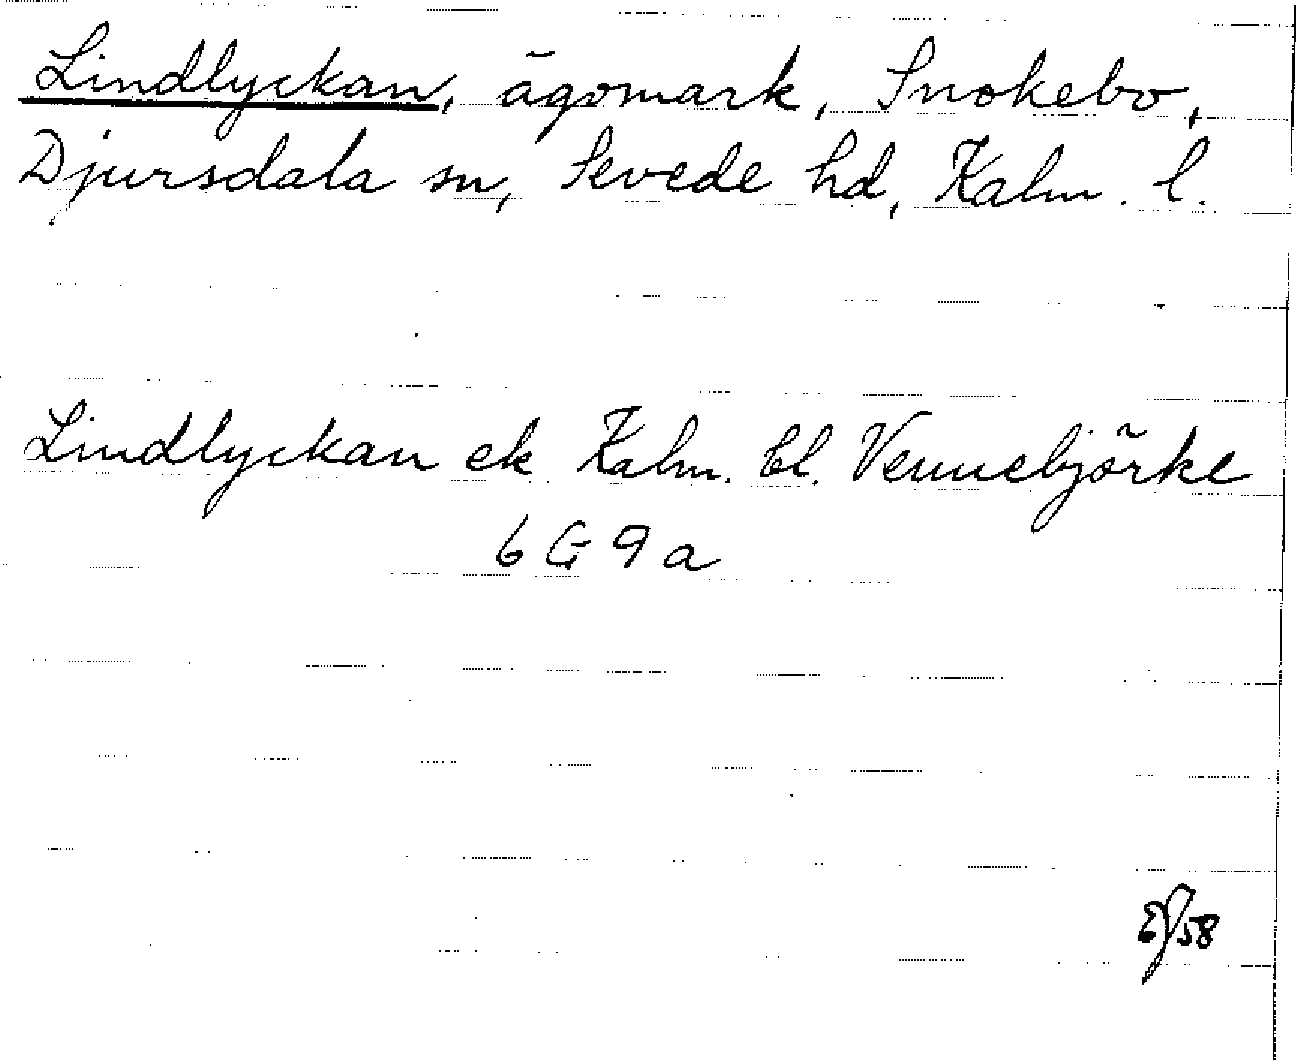 Lindlyckan, ägomark, Snokebo,
Djursdala sn, Sevede hd, Kalm. l.
Lindlyckan ek Kalm. bl. Vennebjörke
6 G 9 a
58